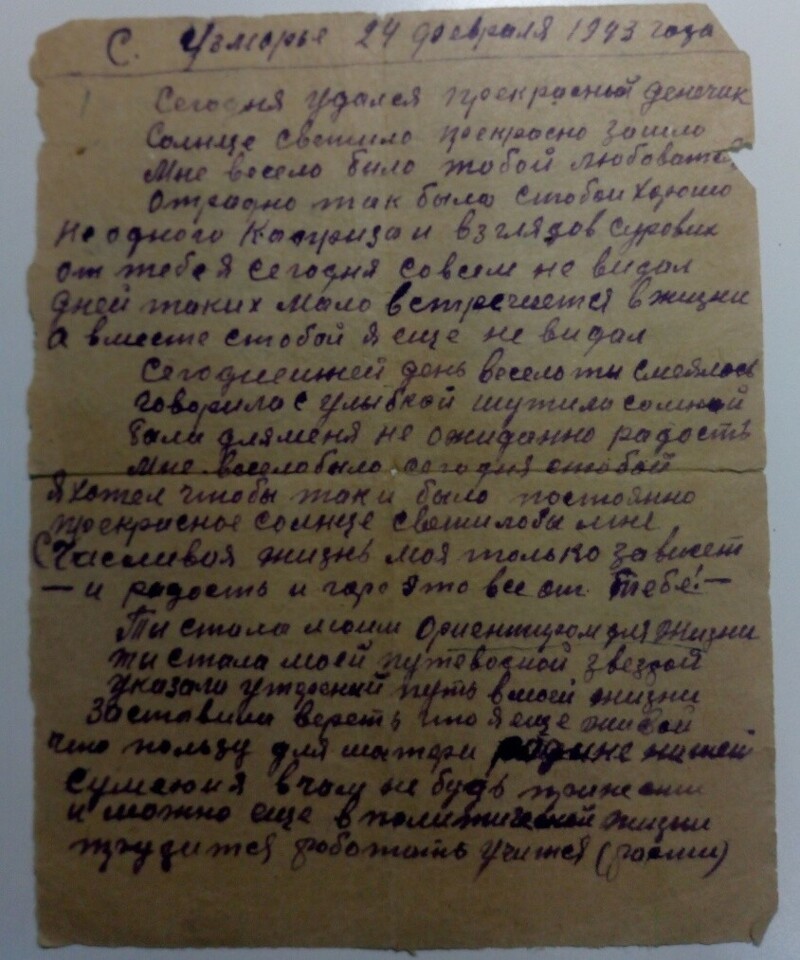 С. Узморье 24 февраля 1943 года
Сегодня удался прекрасный денечик
Солнце светило прекрасно зашло
Мне весело было тобой любоватся
Отрадно так было стобой хорошо
Не одного Каприза и взглядов сурових
от тебя я сегодня совсем не видал
дней таких мало встречается в жизни
А вместе стобой я еще не видал
Сегоднешней день весело ты смеялось
говорила с улыбкой шутила сомной
Была дляменя не ожиданно радость
Мне веселобыло сегодня стобой
Я хотел чтобы так и было постоянно
прекрасное солнце светилобы мне
Счасливая жизнь моя только зависет
— и радость и горе это все от тебя! —
Ты стала моим ориентиром для жизни
ты стала моей путеводной звездой
указала путь вмоей жизни
Заставила вереть что я еще живой
что пользу для матери родине нашей
Сумею и я вчом не будь принести
и можно еще в политической жизни
трудится работать учится (расти)